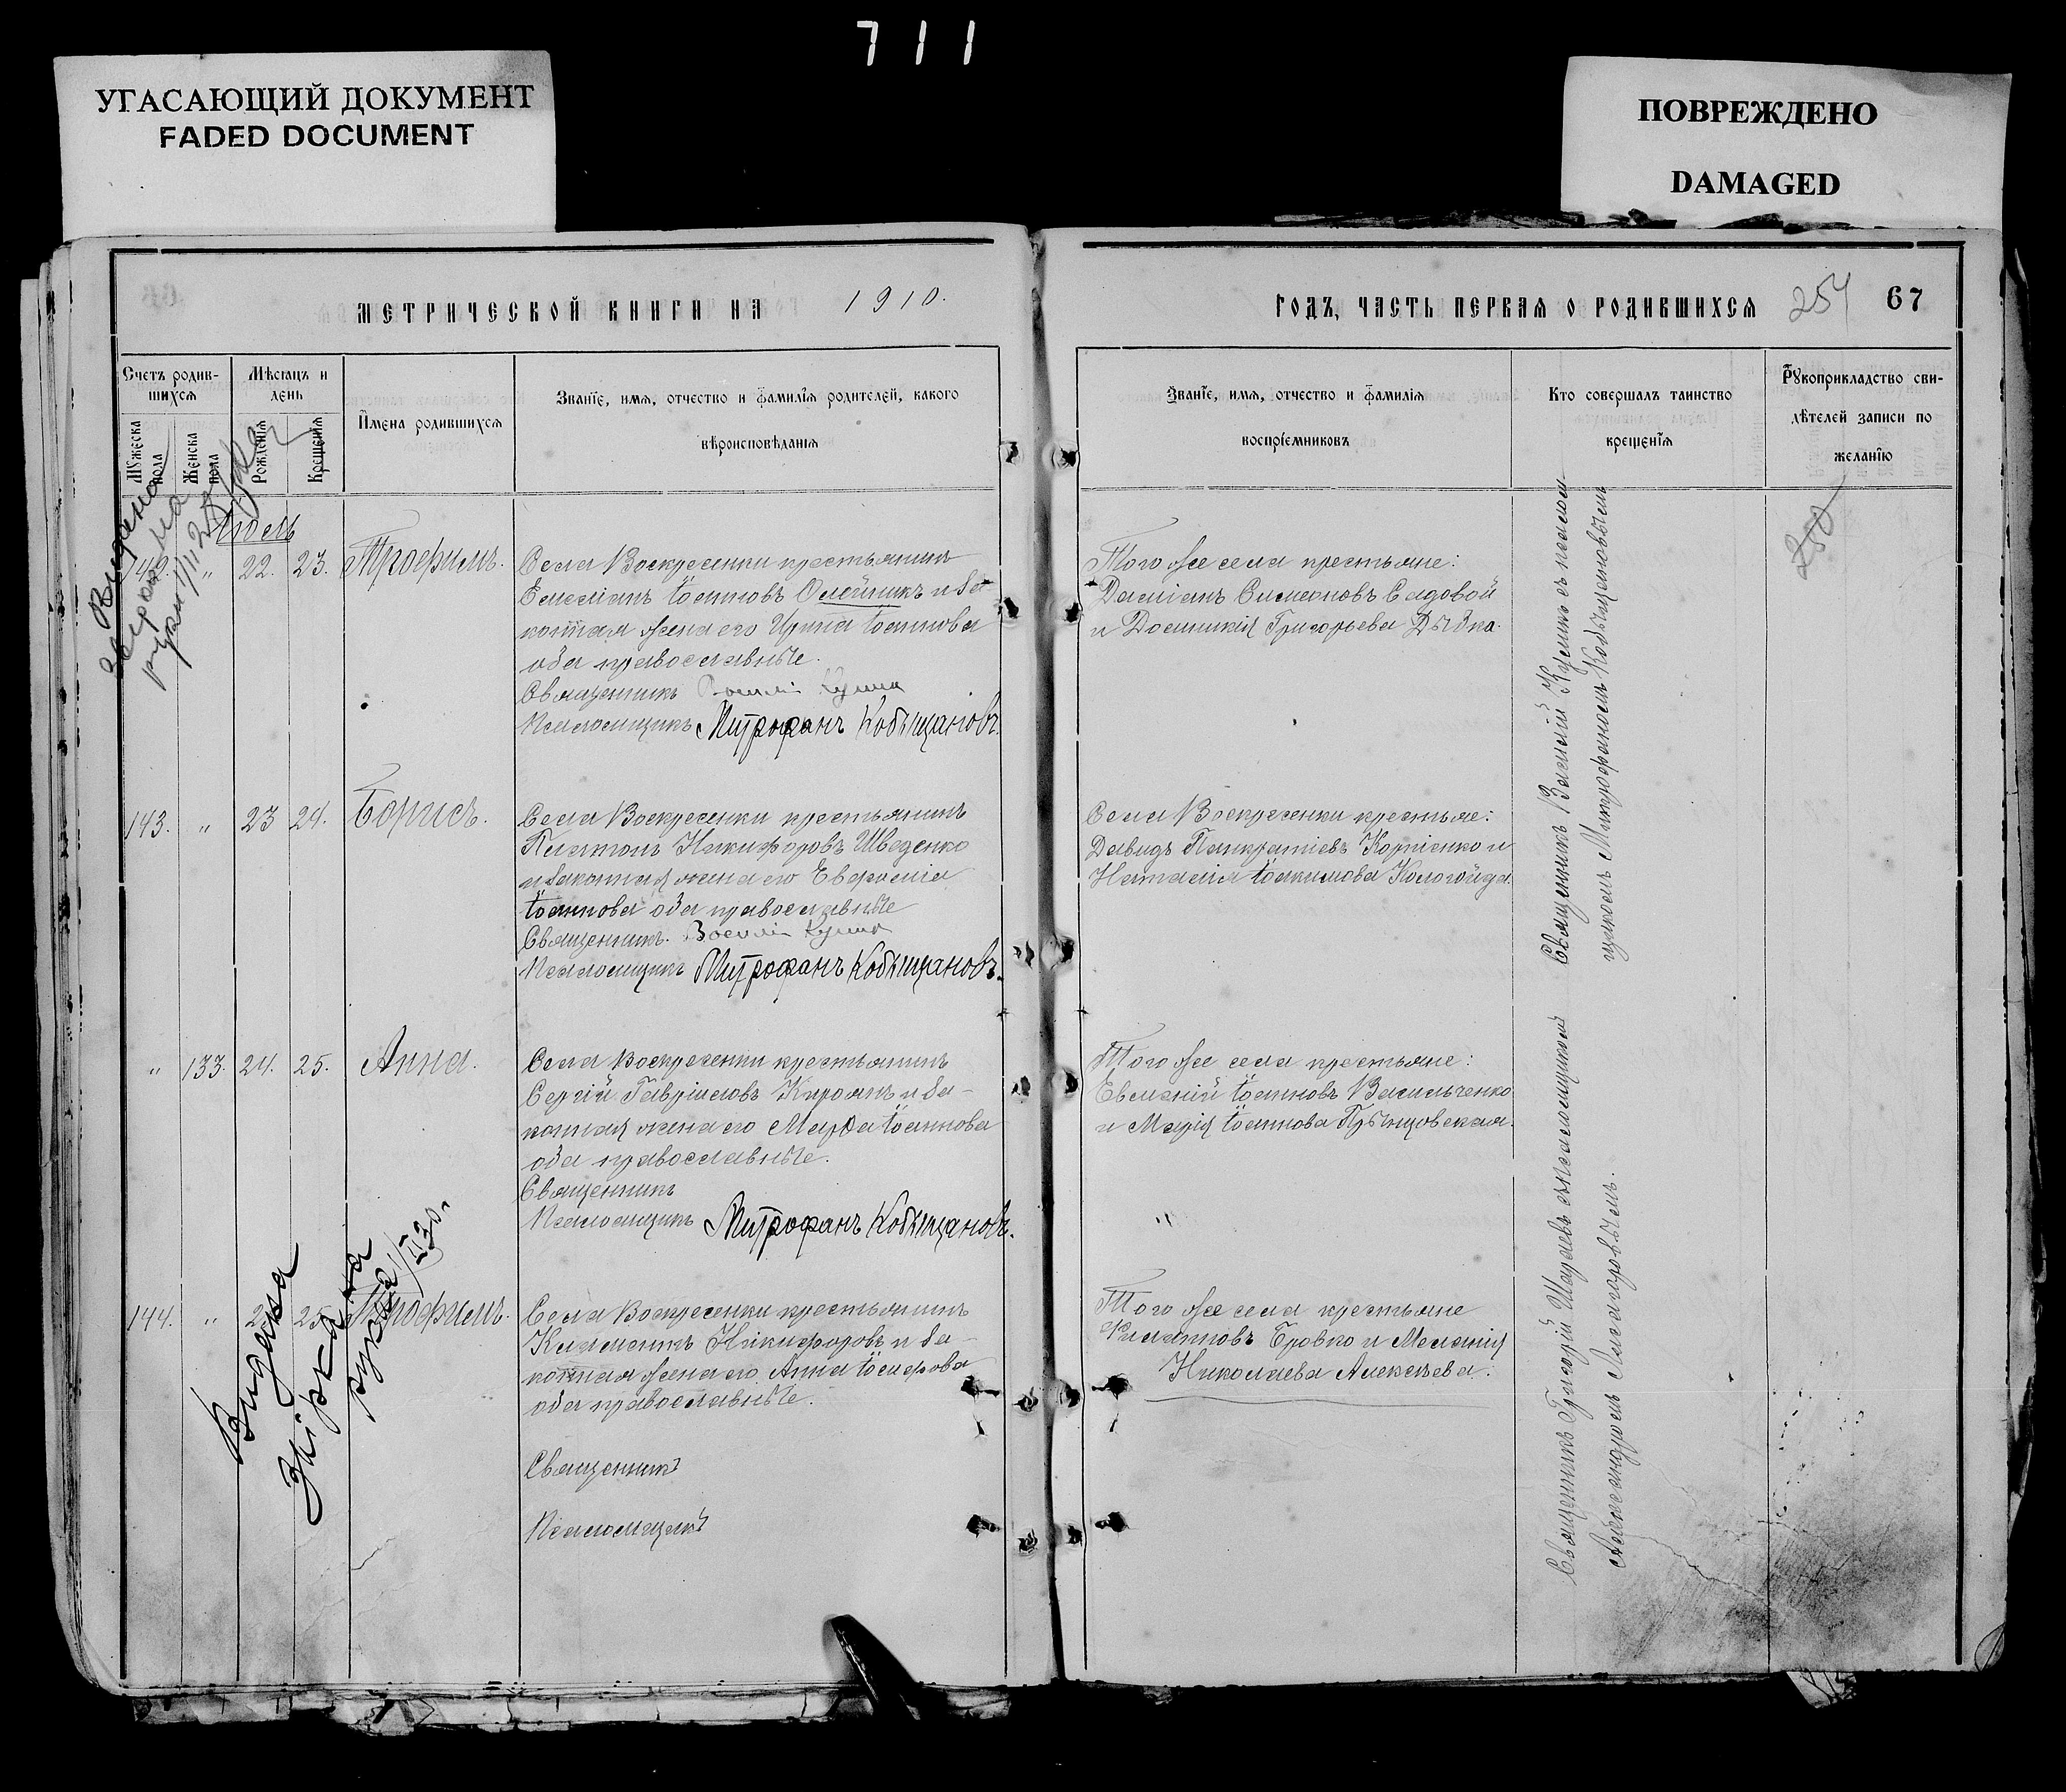 711
УГАСАЮЩИЙ ДОКУМЕНТ
FADED DOCUMENT
ПОВРЕЖДЕНО
DAMAGED
МЕТРИЧЕСКОЙ КНИГИ НА 1910.
ГОДЪ, ЧАСТЬ ПЕРВАЯ О РОДИВШИХСЯ 254 67
Счетъ родив-
шихся
Мужеска пола
Женска пола
Мѣсяцъ и
день
Рожденія
Крещенія
Имена родившихся
Званіе, имя, отчество и фамилія родителей, какого
вѣроисповѣданія
Званіе, имя, отчество и фамилія
воспріемниковъ
Кто совершалъ таинство
крещенія
Рукоприкладство сви-
дѣтелей записи по
желанію
250
Июль
142. " 22. 23. Трофимъ.
Села Воскресенки крестьянинъ
Емеліанъ Іоанновъ Олейникъ и за-
конная жена его Ирина Іоаннова
оба православные.
Священникъ Василій Куликъ
Псаломщикъ Митрофанъ Кобыщановъ.
Того же села крестьяне:
Даміанъ Симеоновъ Садовой
и Домникія Григорьева Дѣдка.
143. " 23 24. Борисъ.
Села Воскресенки крестьянинъ
Платонъ Никифоровъ Шведенко
и законная жена его Евфросинія
Іоаннова оба православные
Священникъ. Василій Куликъ
Псаломщикъ Митрофанъ Кобыщановъ.
Села Воскресенки крестьяне:
Давидъ Панкратіевъ Корніенко и
Наталія Іоакимова Кологойда.
" 133. 24. 25. Анна.
Села Воскресенки крестьянинъ
Сергій Гавріиловъ Кироянъ и за-
конная жена его Марѳа Іоаннова
оба православные.
Священникъ
Псаломщикъ Митрофанъ Кобыщановъ.
Того же села крестьяне:
Евменій Іоанновъ Васильченко
и Марія Іоаннова
144. " 25. Трофимъ.
Села Воскресенки крестьянинъ
Никифоровъ и за-
конная жена его Анна Іосифова
оба православные.
Священникъ
Псаломщикъ
Того же села крестьяне
Филипповъ Бровко и Меланія
Николаева Алексѣева.
Священникъ Василій Куликъ съ псалом-
щикомъ Митрофаномъ Кобыщановымъ
Священникъ Григорій съ псаломщикомъ
Александромъ
Видана
Звірка на
руки